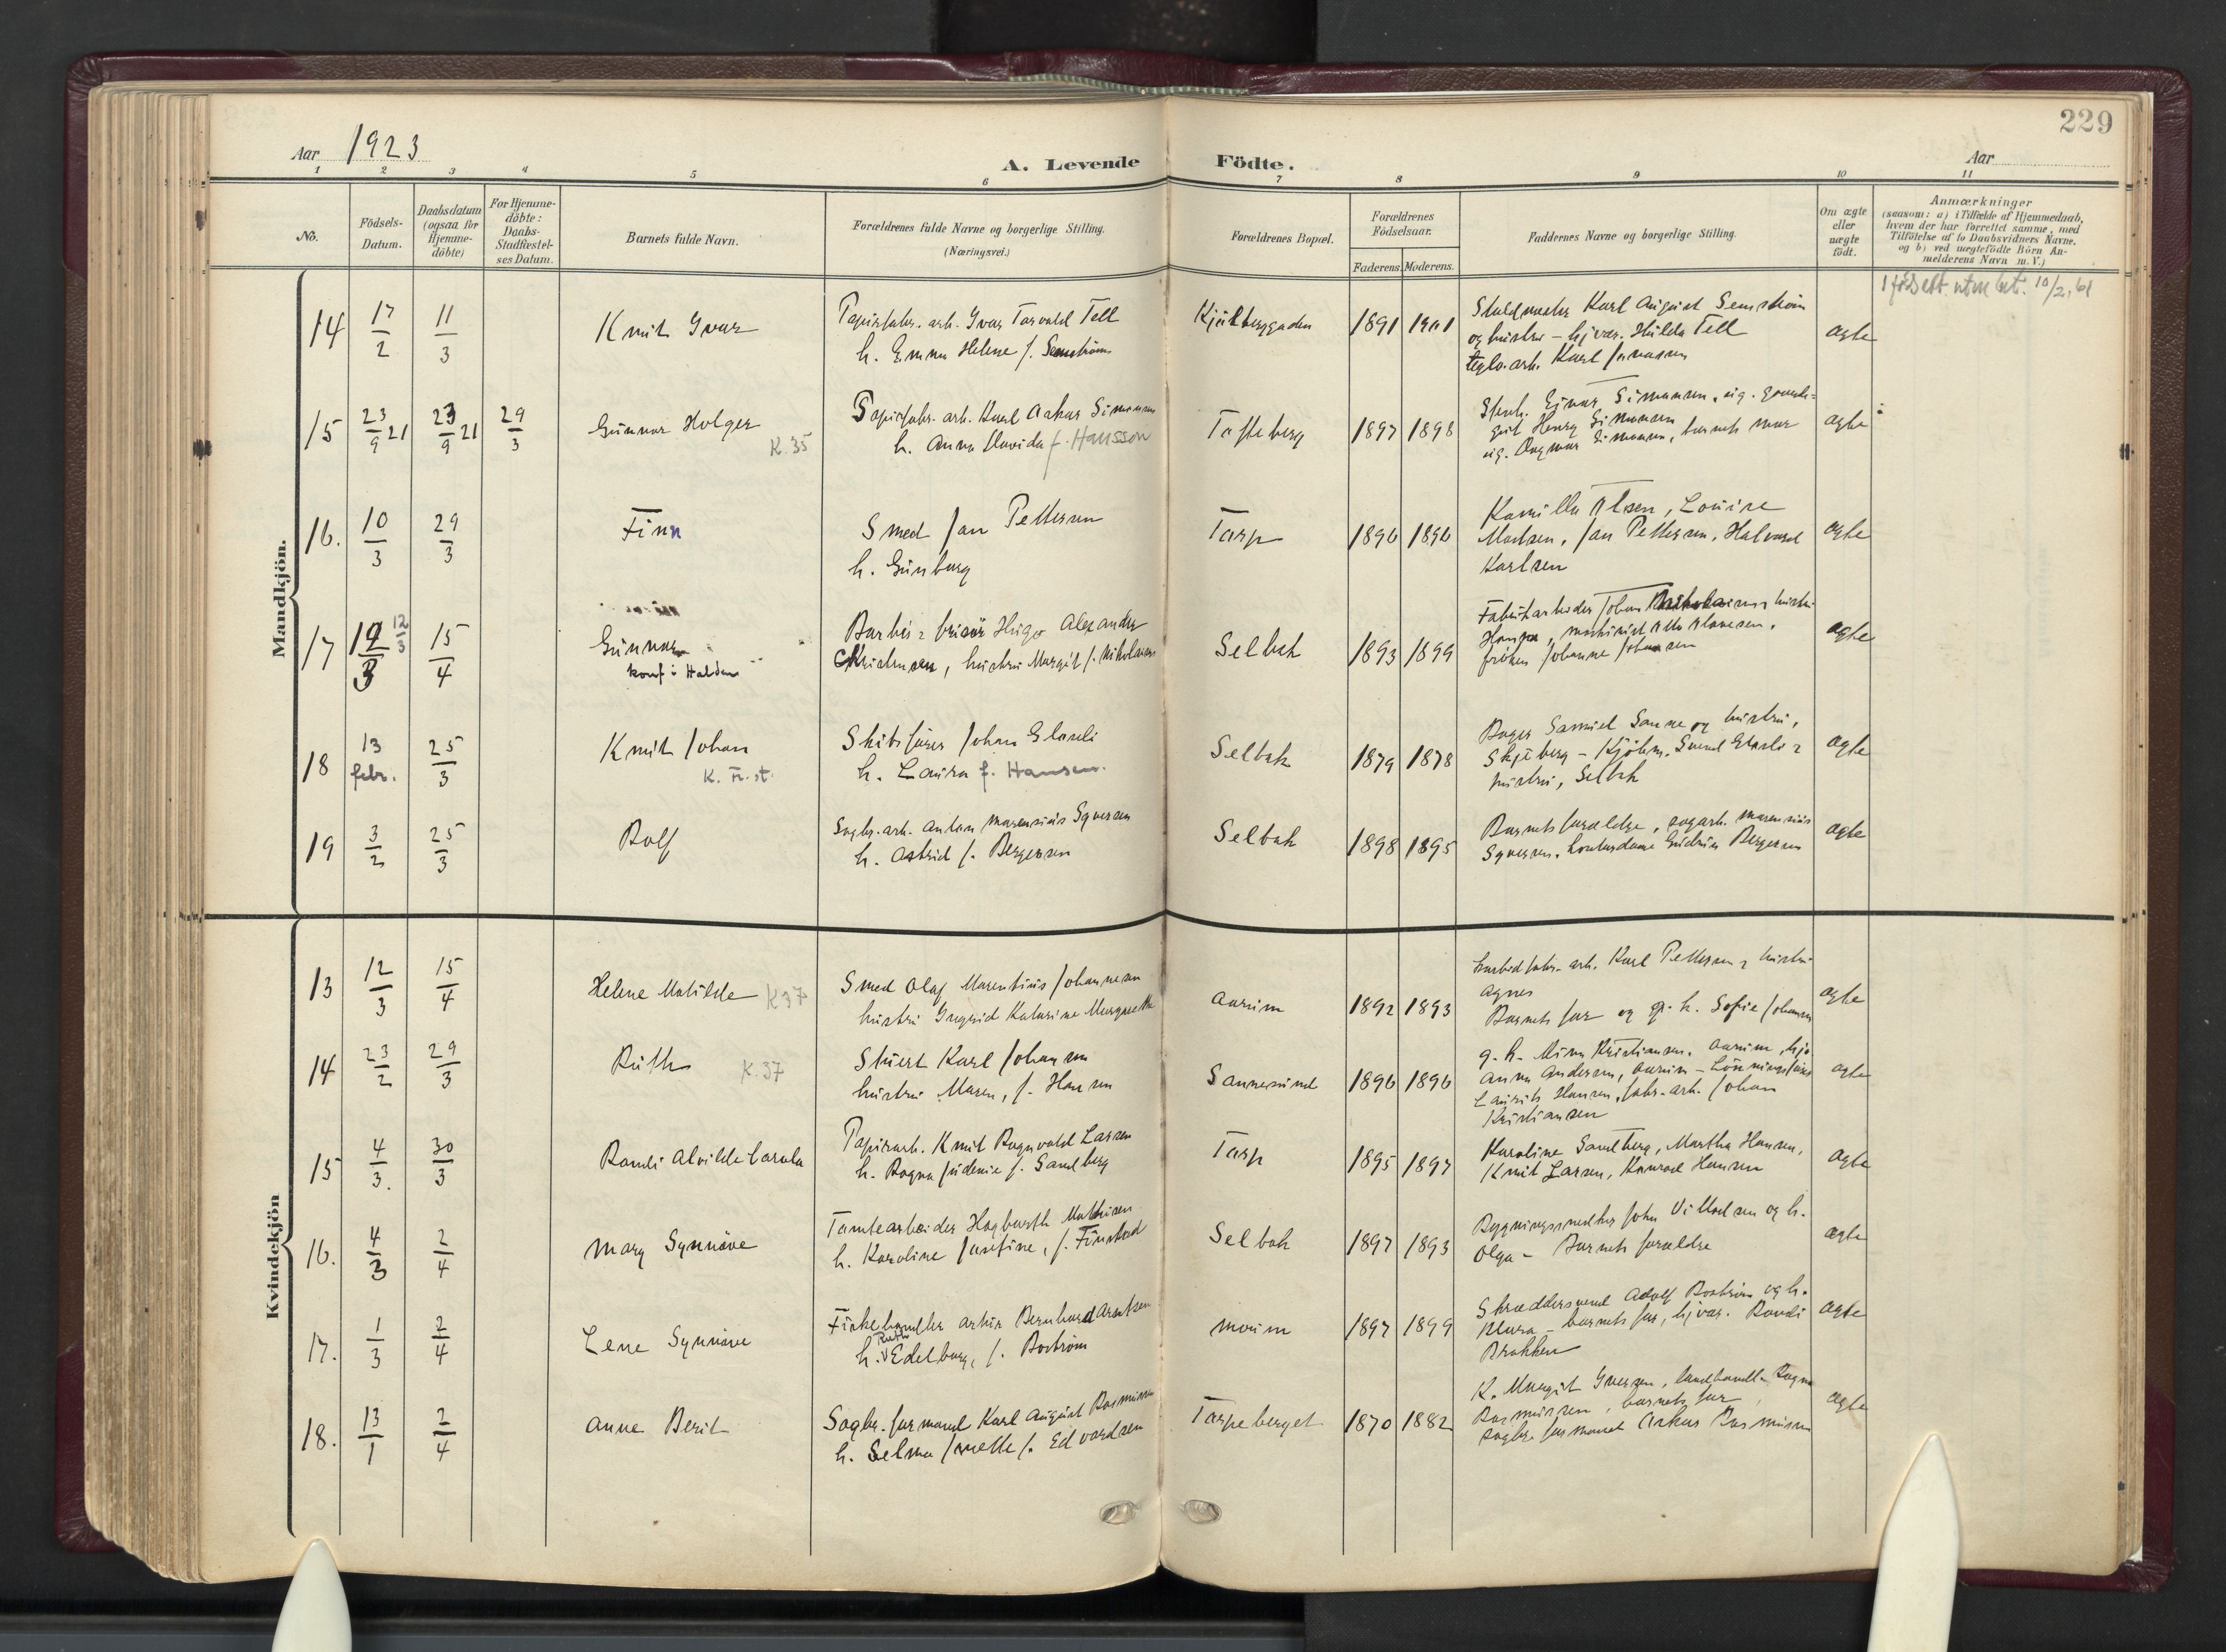 229
Aar 1923
A. Levende Födte.
Aar
1 2 3 4 5 6 7 8 9 10 11
No.
Födsels-
Datum.
Daabsdatum
(ogsaa for
Hjemme-
döbte)
For Hjemme-
döbte:
Daabs-
Stadfæstel-
ses Datum.
Barnets fulde Navn.
Forældrenes fulde Navne og borgerlige Stilling.
(Næringsvei.)
Forældrenes Bopæl.
Forældrenes
Födselsaar.
Faderens. Moderens.
Faddernes Navne og borgerlige Stilling.
Om ægte
eller
uægte
födt.
Anmærkninger
(saasom: a) i Tilfælde af Hjemmedaab,
hvem der har forrettet samme, med
Tilföielse af to Daabsvidners Navne.
og b) ved uægtefödte Börn An-
melderens Navn m. V.)
10/2.61
Mandkjön.
14 17/2 11/3 Knut Ivar
Papirfabr. arb. Ivar Torvald Tell
h. Emma Helene f. Semström
Kjölberggaden 1891 1901
Karl August Semström
og hustru - hjvær. Hulda Tell
teglv. arb. Karl Jonassen
ægte
15 23/9 21 23/9 21 29/3 Gunnar Holger
K. 35
Papirfabr. arb. Karl Oskar Simonsen
h. Anna Davida f. Hansson
Tofteberg 1897 1898
Einar Simonsen, sig.
Henry Simonsen
sig. Dagmar Simonsen, barnets mor
ægte
16. 10/3 29/3 Finn
Smed Jan Pettersen
h. Gunborg
Torp 1896 1896
Kamilla Olsen, Louise
Madsen, Jan Pettersen, Halvard
Karlsen
ægte
17 12/3 12/3 15/4 Gunnar
konf i Halden
Barber & frisör Hugo Alexander
Christensen, hustru Margit f. Nikolaisen
Selbak 1893 1899
Fabrikarbeider Johan Nikolaisen & hustru
maskinist Otto Olavesen,
fröken Johanne Johansen
ægte
18 13 febr. 25/3 Knut Johan
K. Fr. st.
Skibsförer Johan Glosli
h. Laura f. Hansen.
Selbak 1879 1878
Bager Samuel Sanne og hustru,
Skjeberg - Kjöbm. Svend Glosli &
hustru, Selbak
ægte
19 3/2 25/3 Rolf
Sagbr. arb. Anton Marensius Syversen
h. Astrid f. Bergersen
Selbak 1898 1895
Barnets forældre, sagarb. Marensius
Syversen, kontordame Gudrun Bergersen
ægte
Kvindekjön
13 12/3 15/4 Helene Matilde K 37
Smed Olaf Marentius Johannesen
hustru Ingrid Katarine Margrethe
Aarum 1892 1893
karbidfabr. arb. Karl Pettersen & hustru
Agnes
Barnets far og g. k. Sofie Johansen
ægte
14 23/2 29/3 Ruth K. 37
Stuert Karl Johansen
hustru Maren, f. Hansen
Sannesund 1896 1896
g. k. Mina Kristiansen, Aarum,
Anna Andersen, Aarum -
Laurits Hansen, fabr. arb. Johan
Kristiansen
ægte
15 4/3. 30/3 Randi Alvilde Carola
Papirarb. Knut Ragnvald Larsen
h. Ragna Judenie f. Sandberg
Torp 1895 1897
Karoline Sandberg, Martha Hansen,
Knut Larsen, Konrad Hansen
ægte
16. 4/3 2/4 Mary Synnöve
Tomtearbeider Hagbarth Mathisen
h. Karoline Josefine, f. Finstad
Selbak 1897 1893
Bygningssnedker John Villadsen og h.
Olga - Barnets forældre
ægte
17. 1/3 2/4 Lene Synnöve
Fiskehandler Arthur Bernhard Arntsen
h. Ruth Edelborg, f. Boström
Moum 1897 1899
Skræddersvend Adolf Boström og h.
Klara - barnets far, hjvær. Randi
Brekken
ægte
18. 13/1 2/4 Anne Berit
Sagbr. formand Karl August Rasmussen
h. Selma Jonette f. Edvardsen
Torpeberget 1870 1882
K. Margit Iversen, landhandler Ragna
Rasmussen, barnets far,
sagbr. formand Oskar Rasmussen
ægte